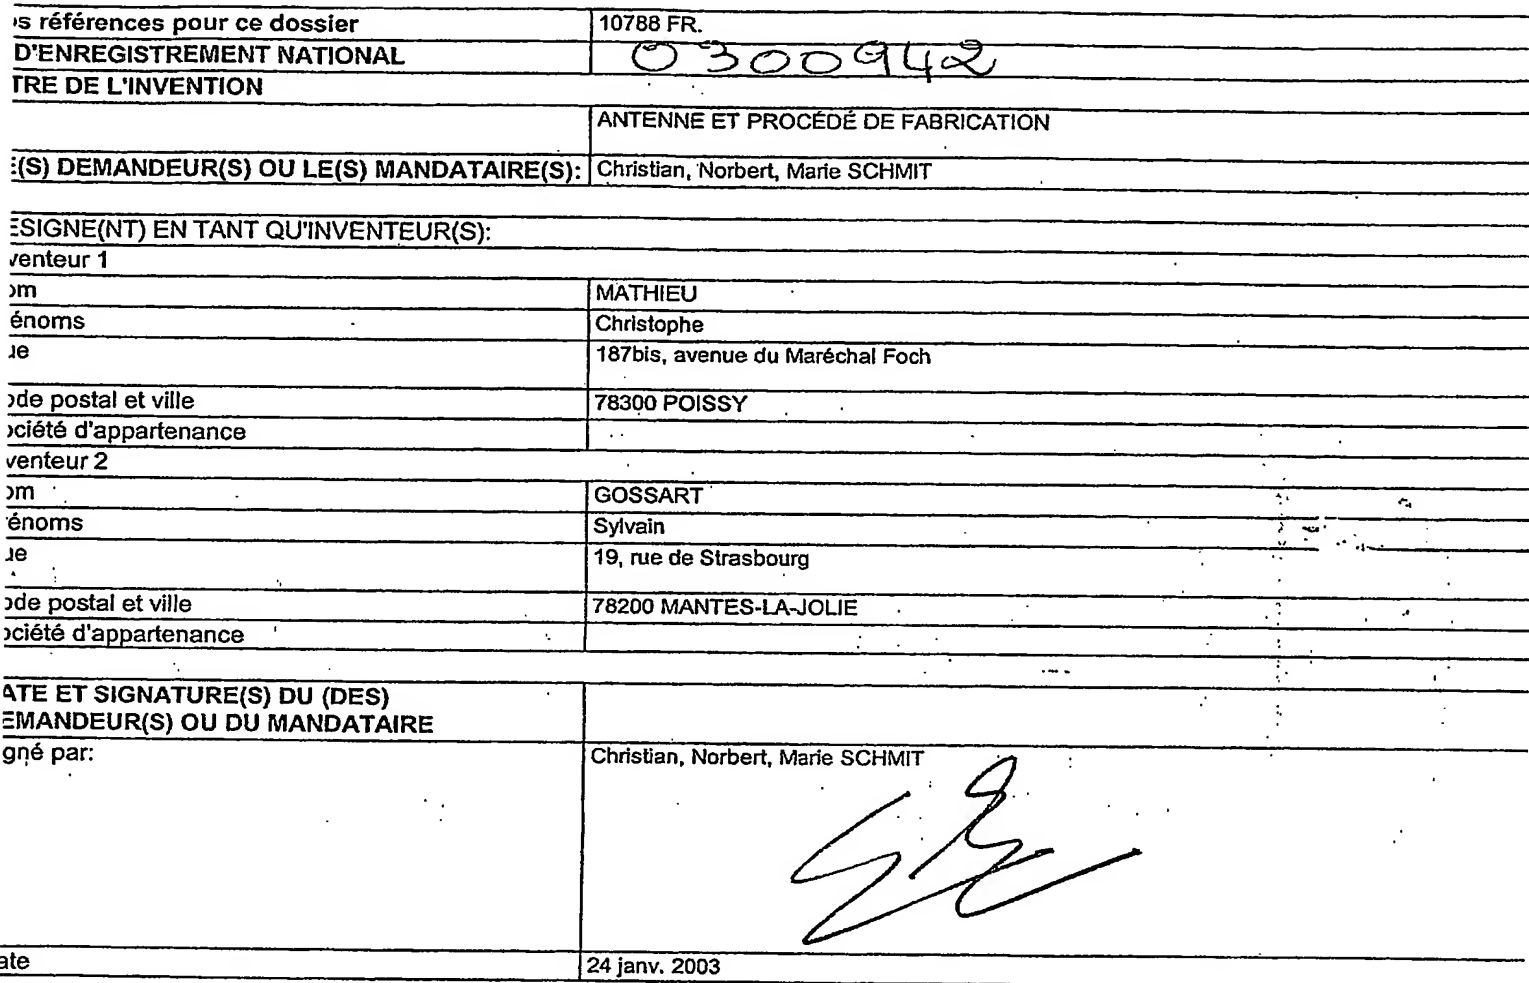 s références pour ce dossier 10788 FR.
D'ENREGISTREMENT NATIONAL 0300942
TRE DE L'INVENTION
ANTENNE ET PROCÉDÉ DE FABRICATION
E(S) DEMANDEUR(S) OU LE(S) MANDATAIRE(S): Christian, Norbert, Marie SCHMIT
ESIGNE(NT) EN TANT QU'INVENTEUR(S):
venteur 1
om MATHIEU
énoms Christophe
ue 187bis, avenue du Maréchal Foch
ode postal et ville 78300 POISSY
ociété d'appartenance
venteur 2
om GOSSART
rénoms Sylvain
ue 19, rue de Strasbourg
ode postal et ville 78200 MANTES-LA-JOLIE
ociété d'appartenance
ATE ET SIGNATURE(S) DU (DES)
EMANDEUR(S) OU DU MANDATAIRE
gné par: Christian, Norbert, Marie SCHMIT
ate 24 janv. 2003